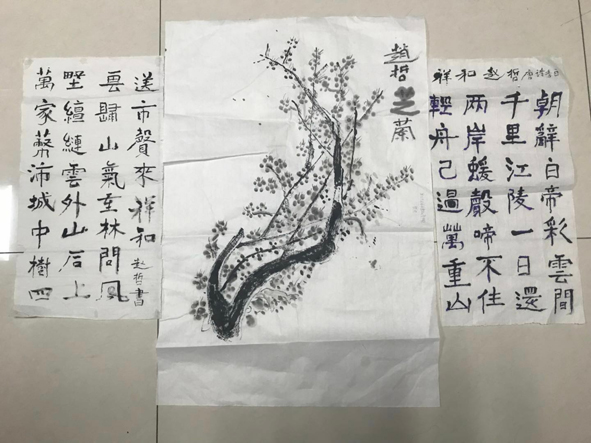 朝辭白帝彩雲間
千里江陵一日還
两岸蝯聲啼不住
輕舟己過萬重山
祥和 赵哲
趙哲芝蘭
萬家沛城中樹四
墅縺雲外山后上
雲歸山氣重林間風
送市聲來祥和
赵哲書